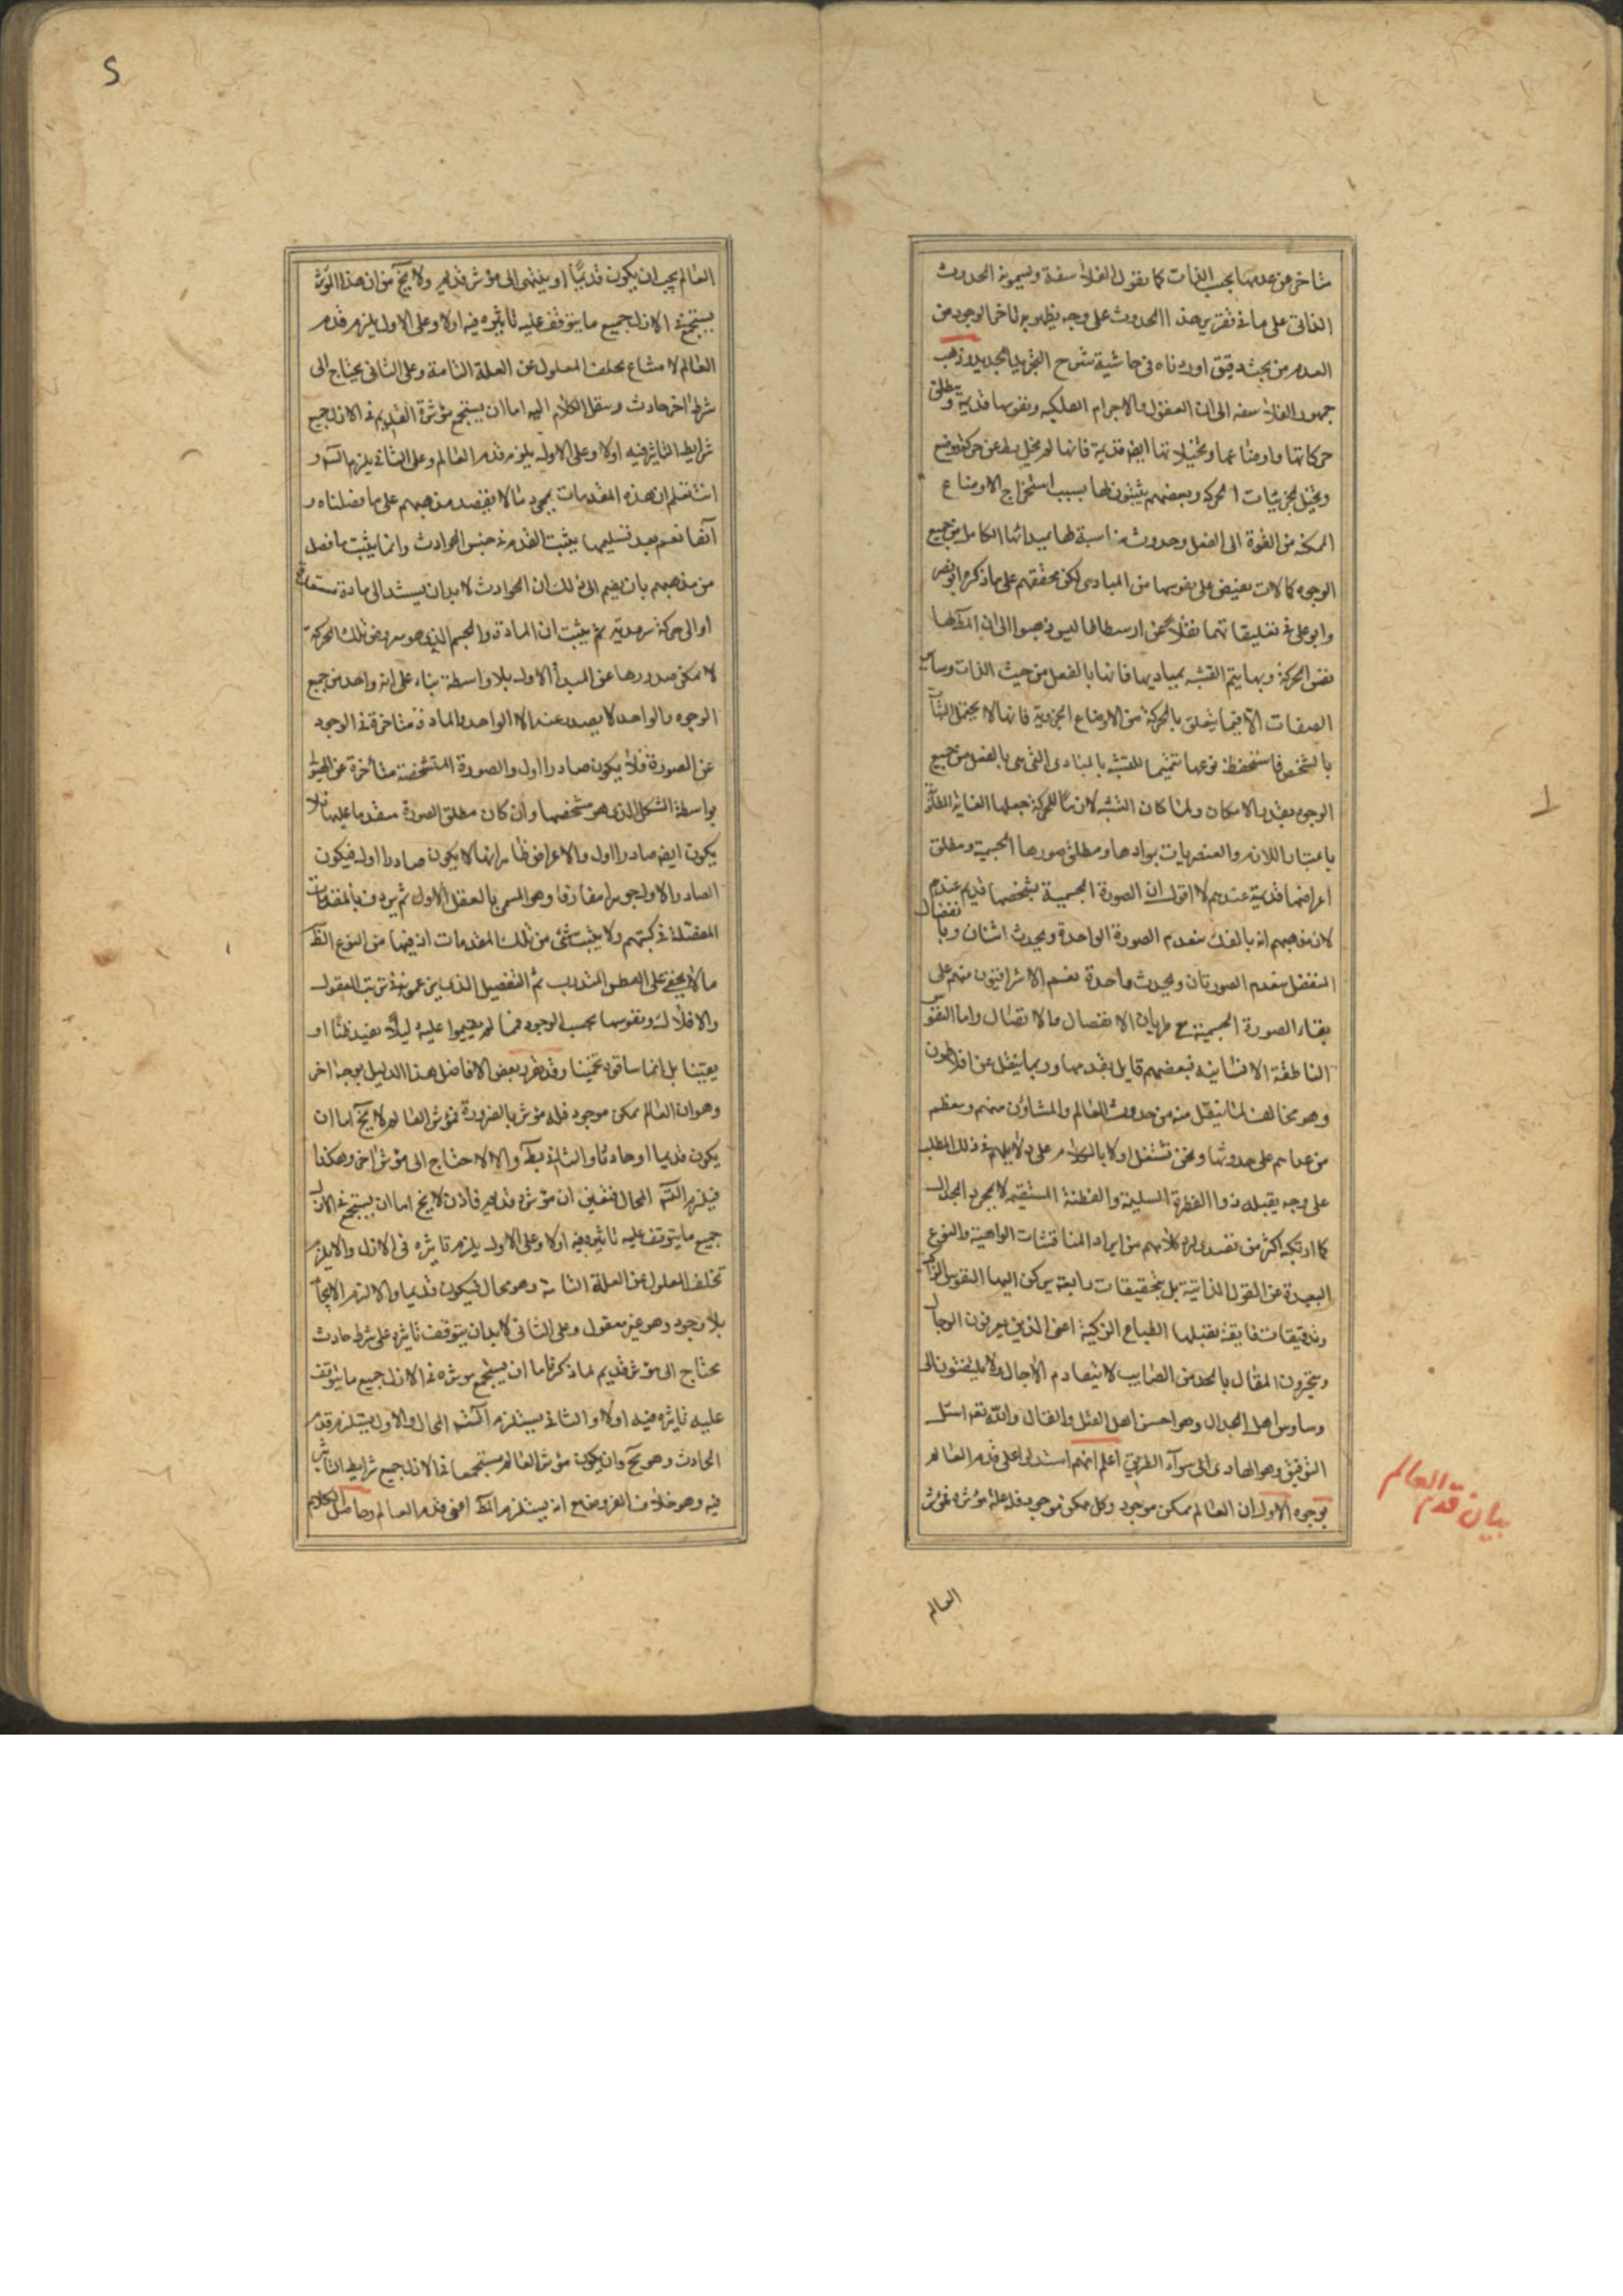 متأخر عن عدمها بحسب الذات كما يقول الفلاسفة ويسمونه الحدوث
الذاتى على ما فى تقرير هذا الحدوث على وجه يظهر به تأخر الوجود من
العدم من بحث دقيق اوردناه فى حاشية شرح التجريد الجديد وذهب
جمهور الفلاسفه الى ان العقول والاجرام الفلكيه ونفوسها قديمة ومطلق
حركاتها واوضاعها وتخيلاتها ايضا قديمة فانها لم يخل قط عن حركة ووضع
وتخيل لجزئيات الحركة وبعضهم يثبتون لها بسبب استخراج الاوضاع
الممكنه من القوة الى الفعل وحدوث مناسبة لها بمبدائها الكامل من جميع
الوجوه كمالات تفيض على نفوسها من المبادى لكن محققهم على ما ذكره ابو نصر
وابو على فى تعليقاتهما نقلا عن ارسطاطاليس ذهبوا الى ان المط لها
نفس الحركة وبها يتم التشبه بمباديها فانها بالفعل من حيث الذات وساير
الصفات الا فيما يتعلق بالحركة من الاوضاع الجزوية فانها لا يحتمل الثبا
بالشخص فاستحفظ نوعها تتميما للتشبه بالمبادى التى هى بالفعل من جميع
الوجوه بقدر الامكان ولما كان التشبه لازما للحركة جعلها الغاية المطلوبة
باعتبار اللازم والعنصريات بموادها ومطلق صورها الجسمية ومطلق
اعراضها قديمة عندهم لا اقول ان الصورة الجسمية بشخصها قديم عندهم
لان مذهبهم انه بالفك ينعدم الصورة الواحدة ويحدث اثنان وبا
نفصال
المنفصل ينعدم الصورتان ويحدث واحدة نعم الاشراقيون منهم على
بقاء الصورة الجسمية مع طريان الانفصال والاتصال واما النفوس
الناطقة الانسانيه فبعضهم قايل بقدمها وربما ينقل عن افلاطون
وهو مخالف لما ينقل منه من حدوث العالم والمشاؤن منهم ومعظم
من عداهم على حدوثها ونحن نشتغل اولا بالكلام على دلايلهم فى ذلك المطلب
على وجه يقبله ذووا الفطرة السليمة والفطنة المستقيمه لا بمجرد الجدال
كما ارتكبه اكثر من تصدى لرد كلامهم من ايراد المناقشات الواهية والنوع
البعيدة عن القول الذاتية بل بتحقيقات رابعة يركن اليها النفوس الزاكية
وتدقيقات فايقة يقبلها الطباع الزكية اعنى الذين يعرفون الرجال
وساوس اهل الجدال وهو احسن اهل العقل والقال والله نعم اسئل
التوفيق وهو الهادى الى سوآء الطريق اعلم انهم استدلوا على قدم العالم
بوجوه الاول ان العالم ممكن موجود وكل ممكن موجود فله علة مؤثرة فمؤثر
العالم
بيان قدم العالم
العالم يجب ان يكون قديما او ينتهى الى مؤثر قديم ولا يخ من ان هذا المؤثر
يستجمع فى الازل جميع ما يتوقف عليه تأثيره فيه اولا وعلى الاول يلزم قدم
العالم لامتناع تخلف المعلول عن العلة التامة وعلى الثانى يحتاج الى
شرط آخر حادث وينقل الكلام اليه اما ان يستجمع مؤثرة القديم فى الازل جميع
شرايط التأثير فيه اولا وعلى الاول يلزم قدم العالم وعلى الثانى يلزم التسلسل و
انت تعلم ان هذه المقدمات بمجردها لا يفيد مذهبهم على ما فصلناه و
آنفا نعم بعد تسليمها يثبت القدم فى جنس الحوادث وانما يثبت ما فصل
من مذهبهم بان يضم الى ذلك ان الحوادث لا بد ان يستند الى مادة متعاقبة
او الى حركة سرمدية ثم يثبت ان المادة والجسم الذى هو معروض تلك الحركة
لا يمكن صدورها عن المبدأ الاول بلا واسطة بناء على انه واحد من جميع
الوجوه والواحد لا يصدر عنه الا الواحد والمادة متاخرة فى الوجود
عن الصورة فلا يكون صادرا اول والصورة المتشخصة متأخرة عن الهيولى
بواسطة الشكل الذى هو مشخصها وان كان مطلق الصورة متقدما عليها فلا
يكون ايض صادرا اول والاعراض ظاهر انها لا يكون صادرا اول فيكون
الصادر الاول جوهرا مفارقا وهو المسمى بالعقل الاول ثم يردف بالمقدمات
المفصلة فى كتبهم ولا يثبت شئ من تلك المقدمات اذ فيها من النوع الظ
ما لا يخفى على الفطن المتدرب ثم التفصيل الذى يزعمونه فى ترتيب العقول
والافلاك ونفوسها بحسب الوجود فمما لم يقيموا عليه دليلا يفيد ظنا او
يقينا بل انما ساقوه تخمينا وقد يقرر بعض الافاضل هذا الدليل بوجه اخر
وهو ان العالم ممكن موجود فله مؤثر بالضرورة فمؤثر العالم لا يخ اما ان
يكون قديما او حادثا والثانى بط والا لاحتاج الى مؤثر اخر وهكذا
فيلزم التس المحال فتعين ان مؤثره قديم فاذن لا يخ اما ان يستجمع فى الازل
جميع ما يتوقف عليه تاثيره فيه اولا وعلى الاول يلزم تاثيره فى الازل والا يلزم
تخلف المعلول عن العلة التامة وهو محال فيكون قديما والا لزم الايجاد
بلا وجود وهو غير معقول وعلى الثانى لا بد ان يتوقف تاثيره على شرط حادث
يحتاج الى مؤثر قديم لما ذكرنا اما ان يستجمع مؤثره فى الازل جميع ما يتوقف
عليه تاثيره فيه اولا والثانى يستلزم التس المحال والاول يستلزم قدم
الحادث وهو مح وان يكون مؤثر العالم مستجمعا فى الازل جميع شرايط التأثير
فيه وهو خلاف الفرض مع انه يستلزم المط اعنى قدم العالم وحاصل الكلام